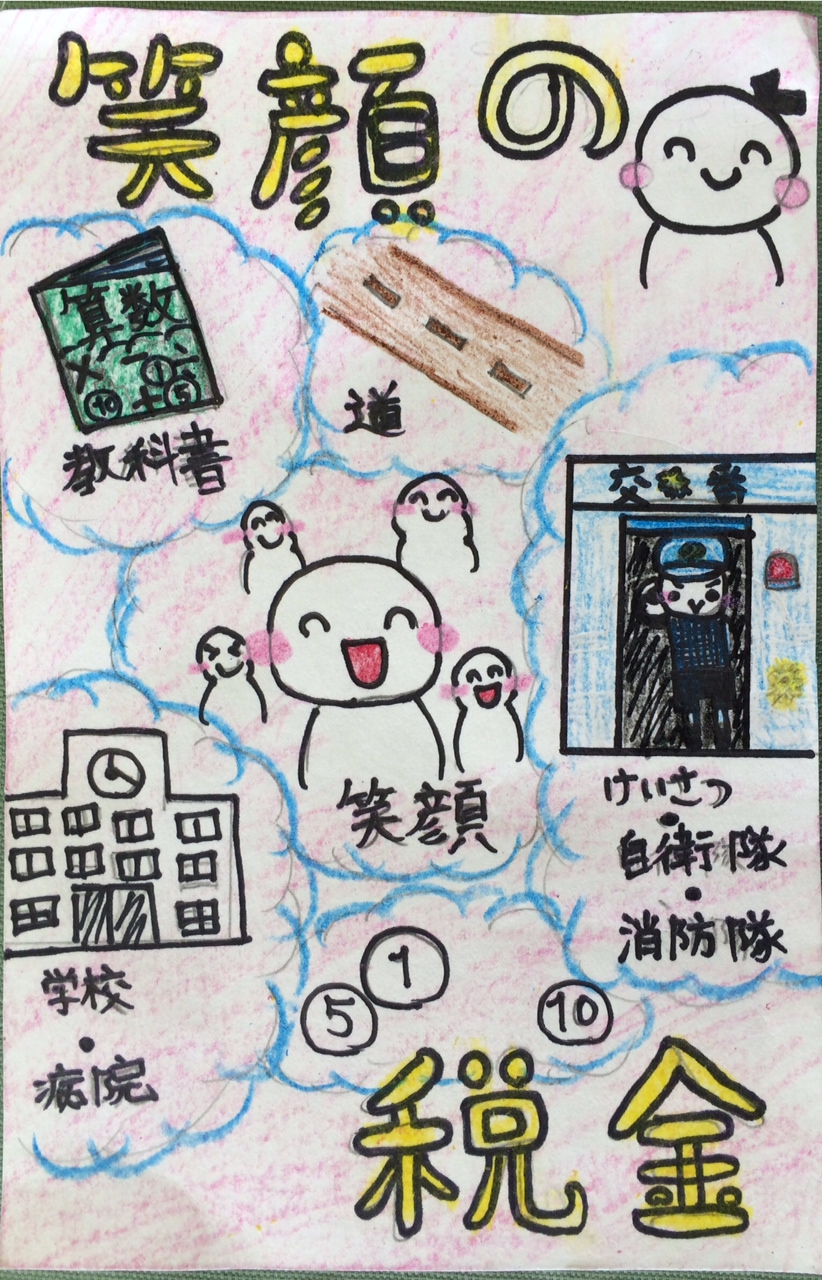 笑顔の
算数
教科書
道
交番
笑顔
けいさつ
・
自衛隊
・
消防隊
学校
・
病院
1
5
10
税金